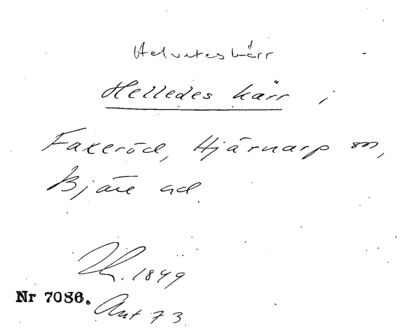 Helveteskärr
Helledes kärr i
Faxeröd, Hjärnarp sn,
Bjäre hd.
1849
Nr 7086.
Ant 73